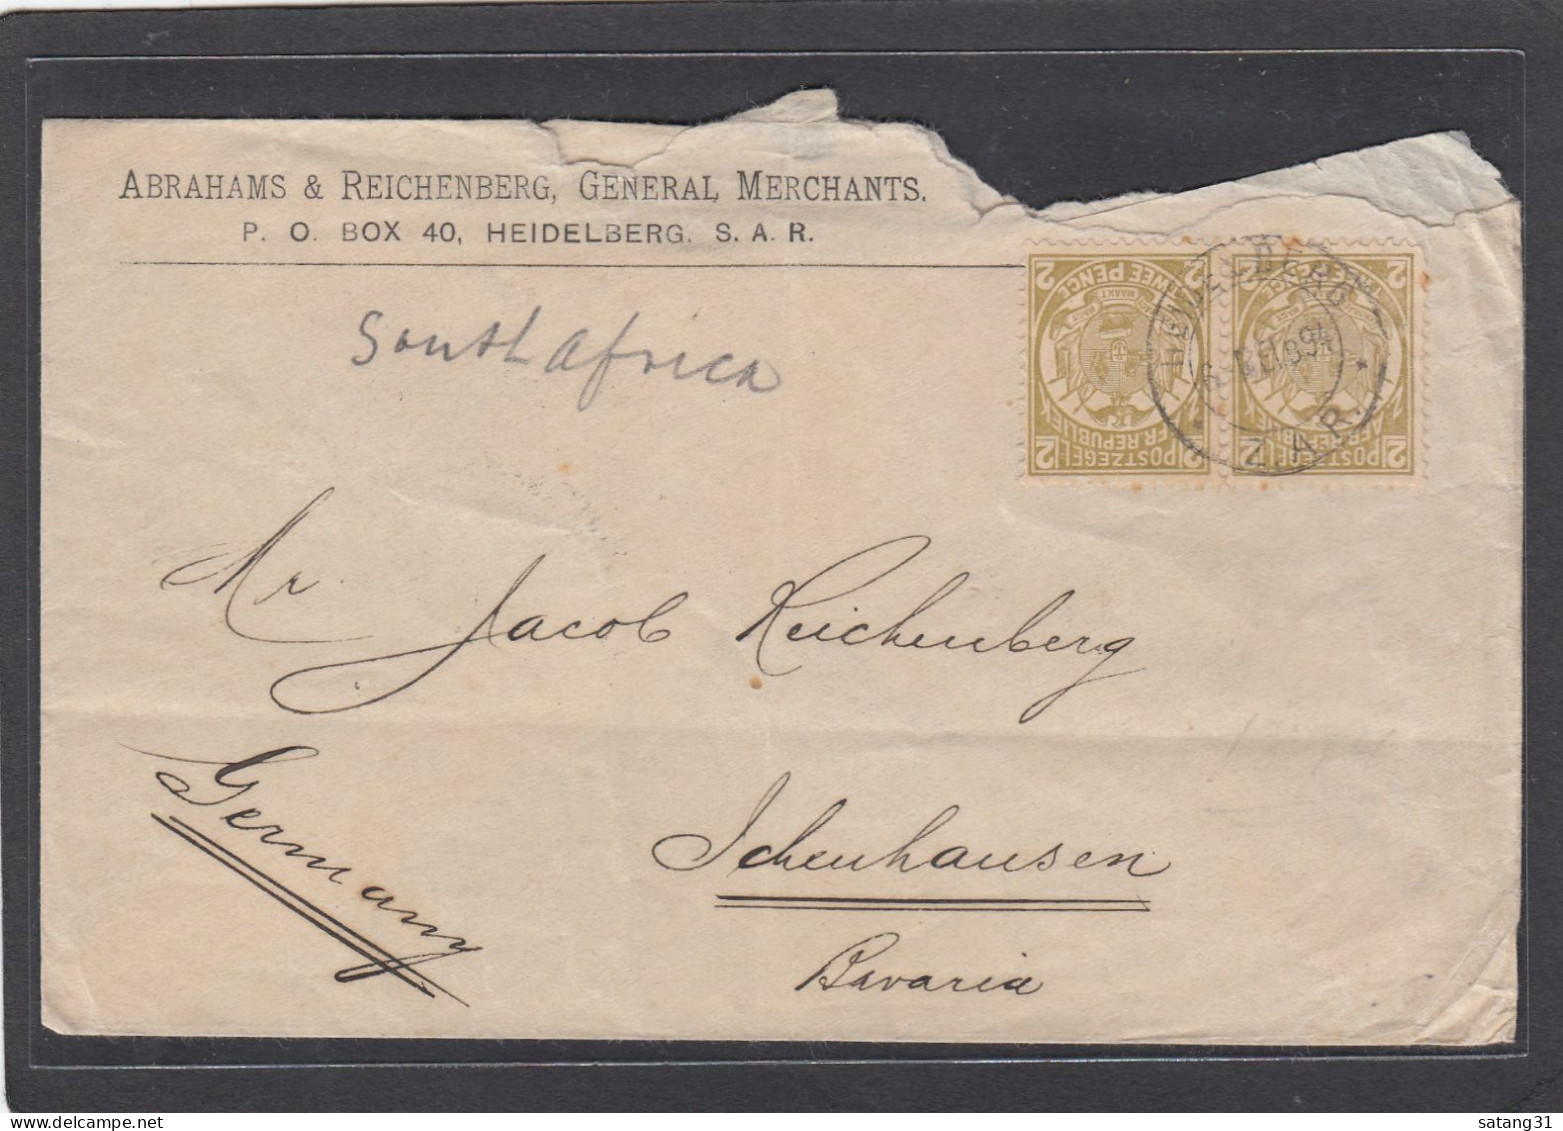 ABRAHAMS & REICHENBERG, GENERAL MERCHANTS.
P. O. BOX 40, HEIDELBERG, S. A. R.
South Africa
2 TWEE PENCE 2
POSTZEGEL
Z. AFR REPUBLIEK
2 2
HEIDELBERG
94
Z.A.R.
Mr. Jacob Reichenberg
Germany
Ichenhausen
Bavaria
satang31